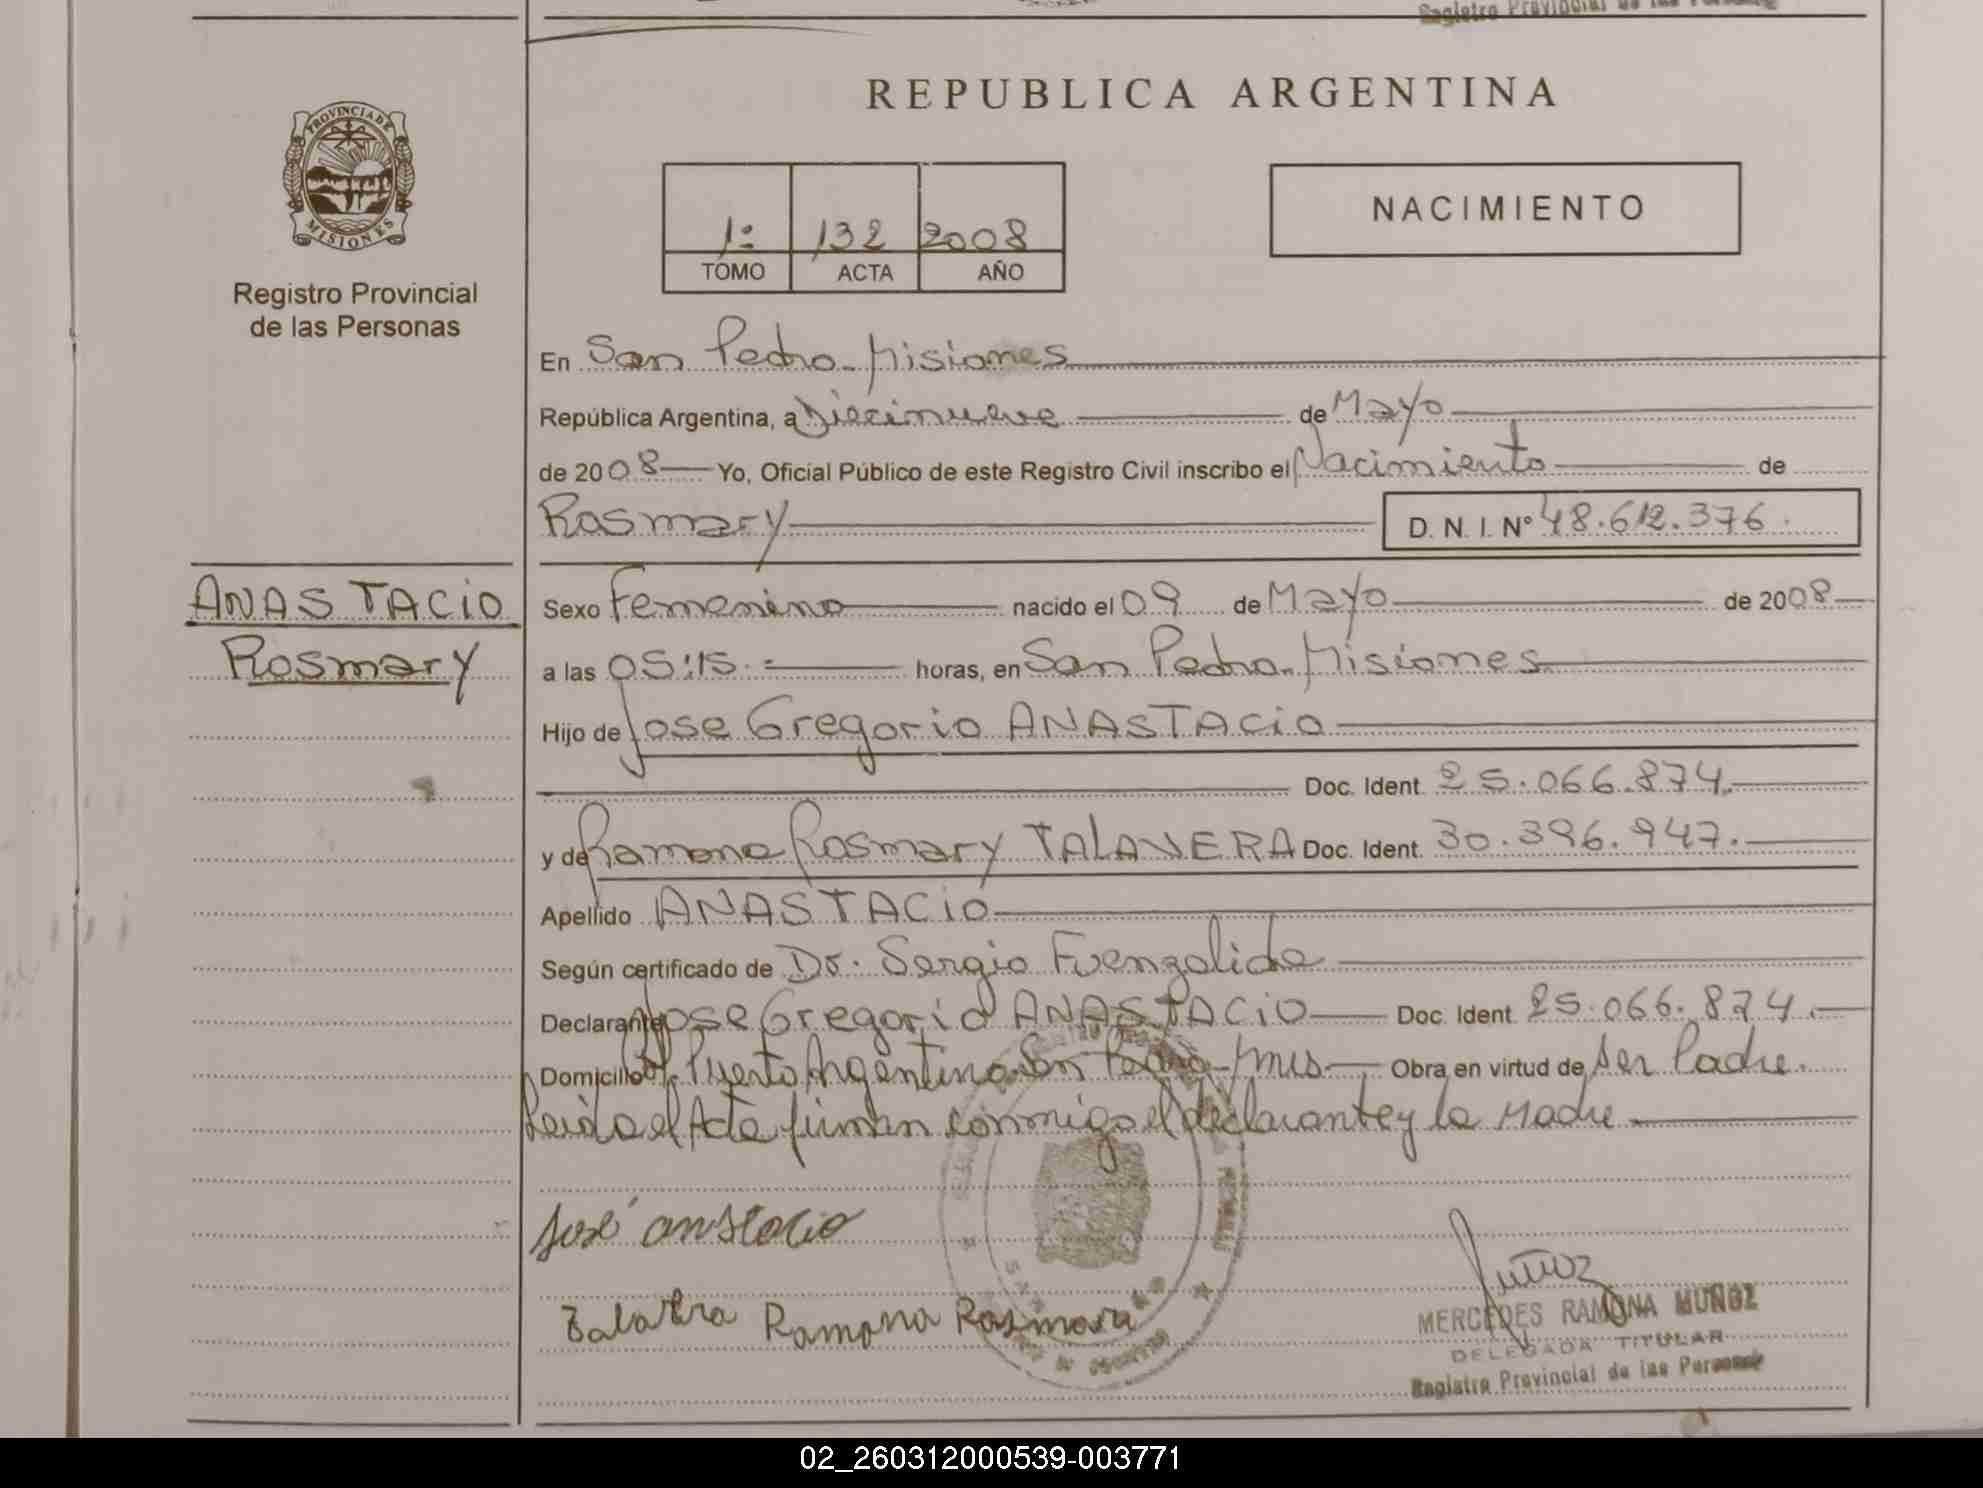 Registro Provincial de las Personas
REPUBLICA ARGENTINA
PROVINCIA DE
MISIONES
Registro Provincial
de las Personas
1º 132 2008
TOMO ACTA AÑO
NACIMIENTO
En San Pedro - Misiones
República Argentina, a Diecinueve de Mayo
de 2008 Yo, Oficial Público de este Registro Civil inscribo el Nacimiento de
Rosmary D. N. I. Nº 48.612.376.
ANASTACIO
Rosmary
Sexo Femenino nacido el 09 de Mayo de 2008
a las 05:15.= horas, en San Pedro - Misiones
Hijo de Jose Gregorio ANASTACIO
Doc. Ident. 25.066.874.
y de Ramona Rosmary TALAVERA Doc. Ident. 30.396.947.
Apellido ANASTACIO
Según certificado de Dr. Sergio Fuenzalida
Declarante Jose Gregorio ANASTACIO Doc. Ident. 25.066.874.
Domicilio Puerto Argentino San Pedro - Mnes Obra en virtud de ser Padre.
Leida el Acta firman conmigo el declarante y la Madre
José anstacio
Ramona Rosmary
Muñoz
MERCEDES RAMONA MUÑOZ
DELEGADA TITULAR
Registro Provincial de las Personas
02_260312000539-003771